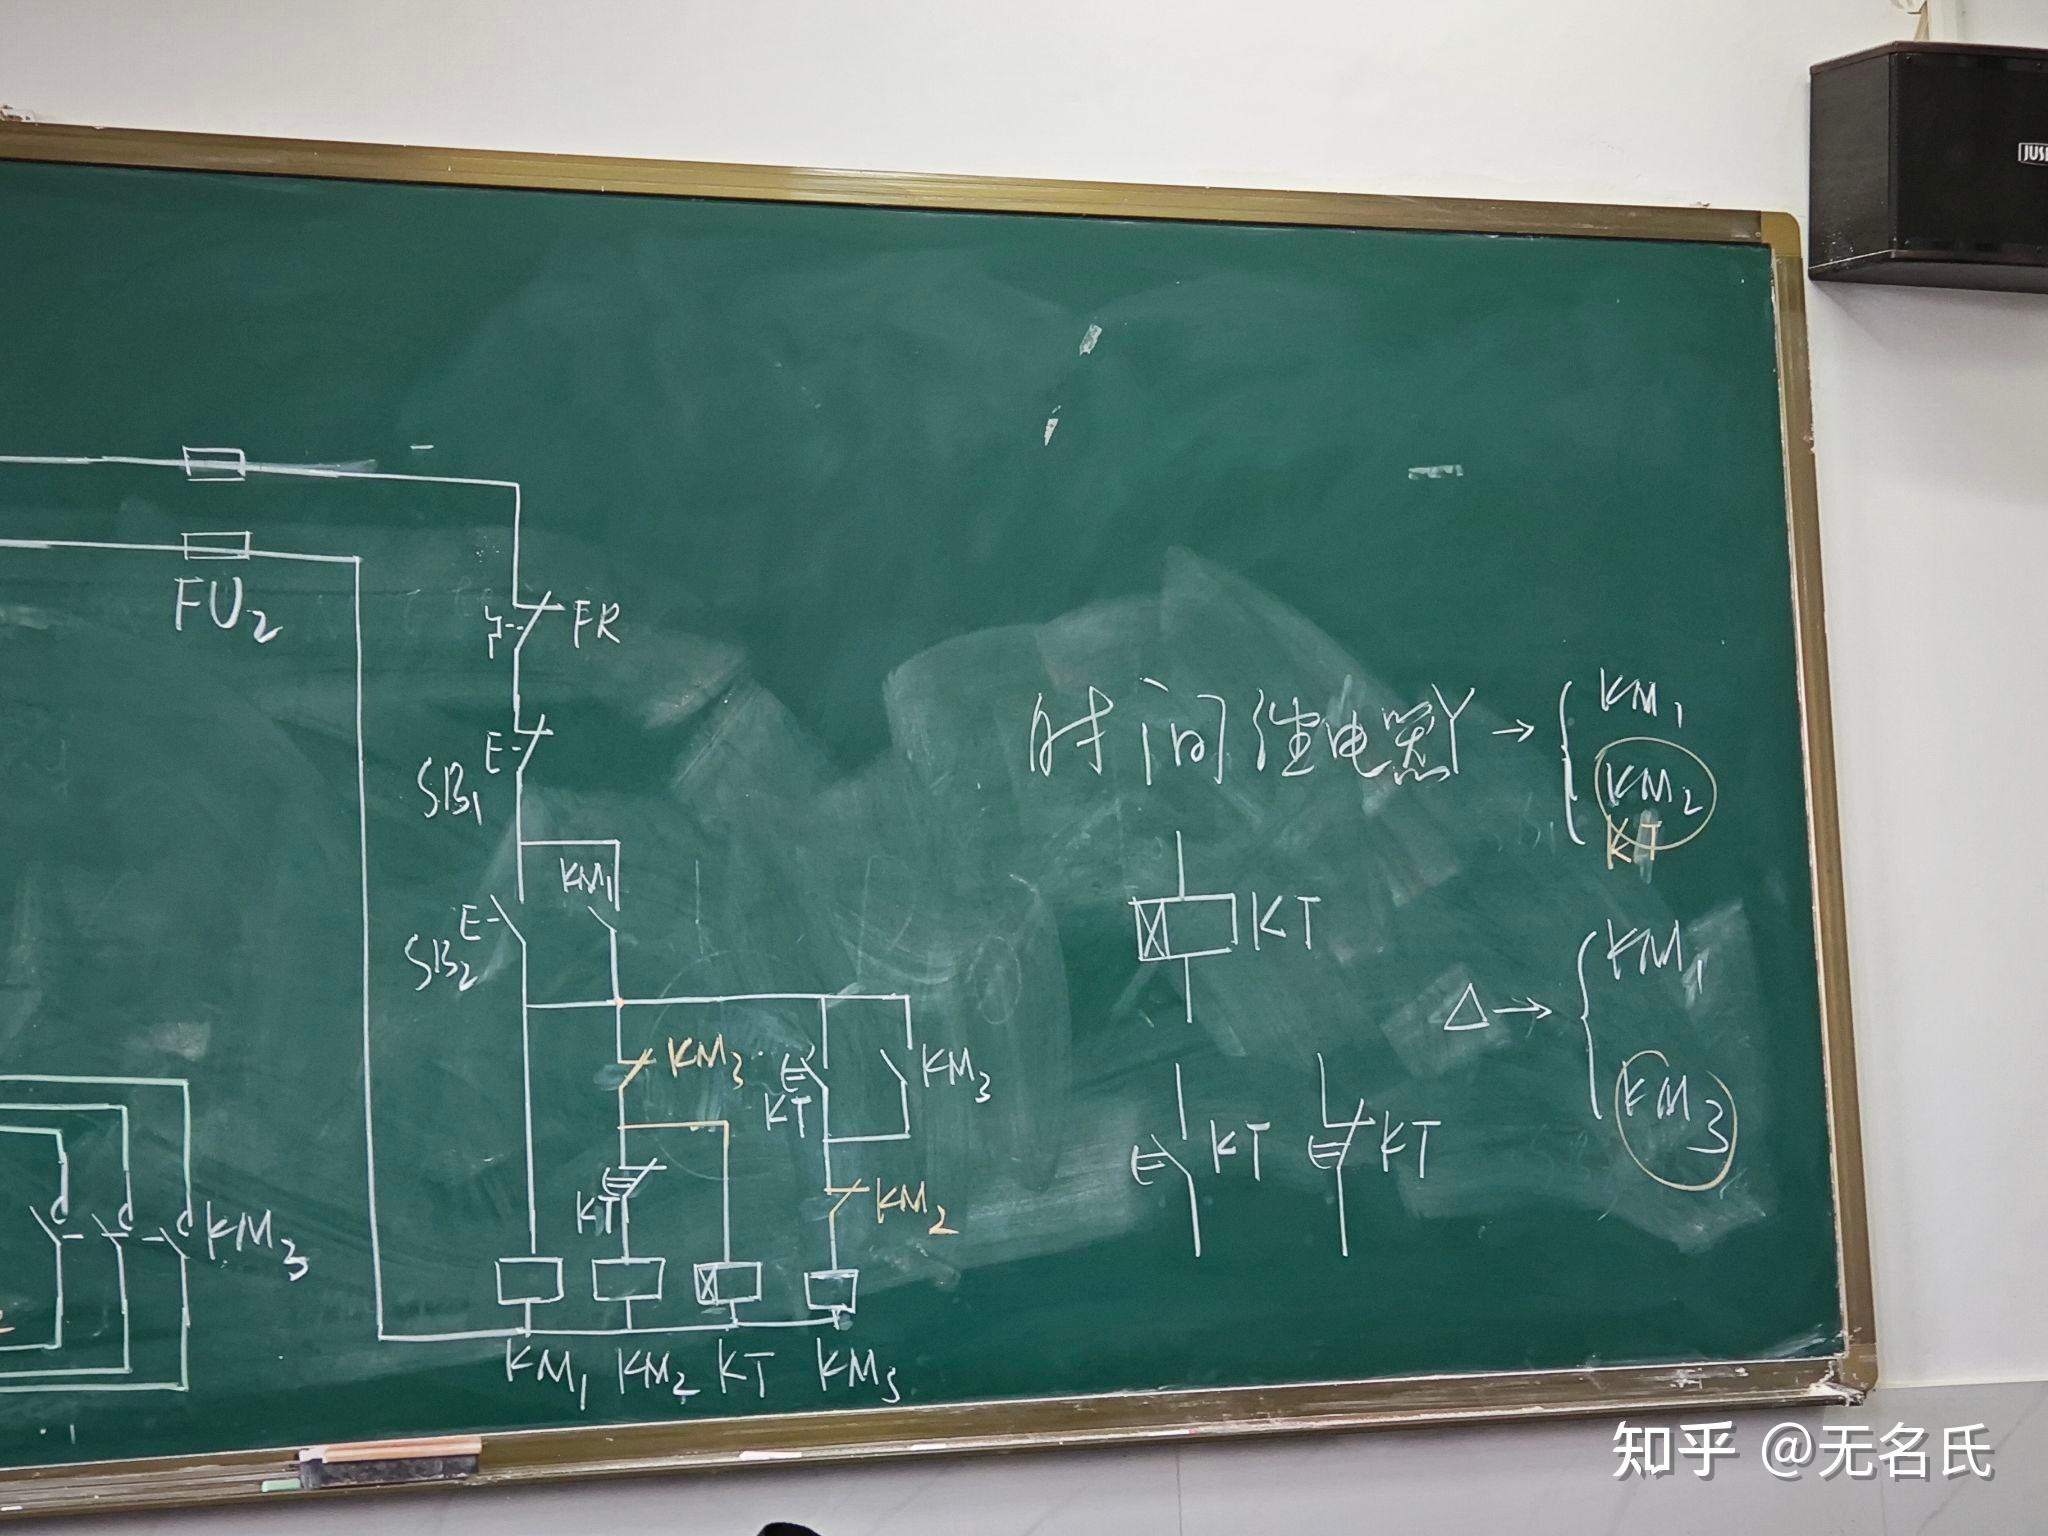 JUS
FU2
FR
E
SB1
KM1
E
SB2
KM3
KT
KM3
KT
KM2
KM3
KM1 KM2 KT KM3
时间继电器 Y→
KM1
KM2
KT
KT
△→
KM1
KM3
KT
KT
知乎 @无名氏